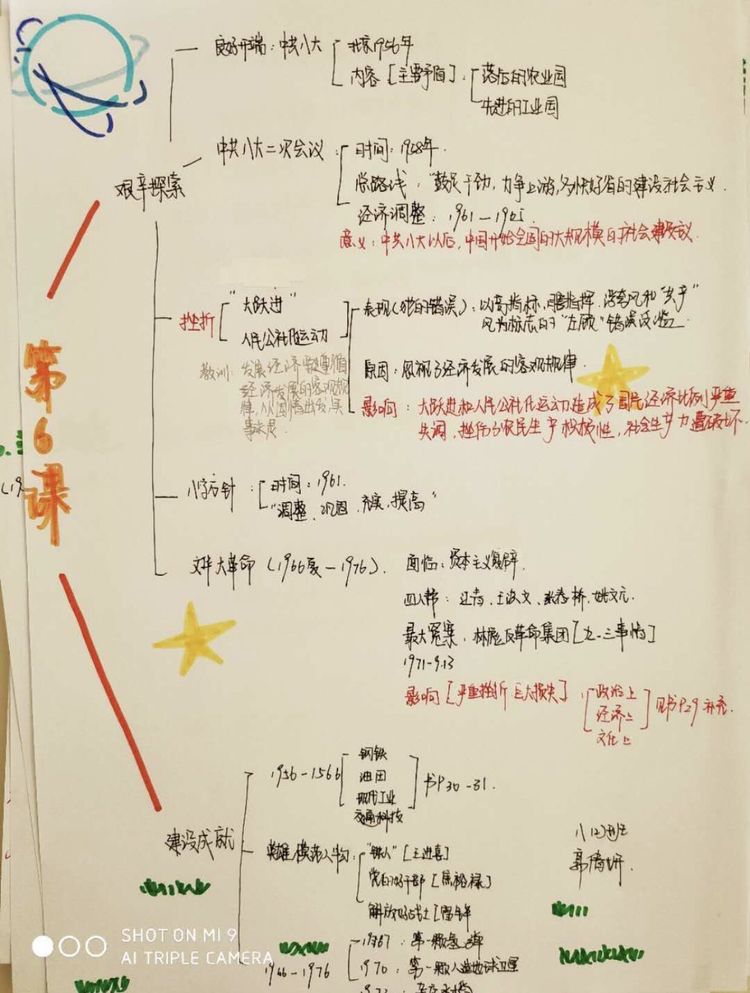 良好开端:中共八大
北京1956年
内容[主要矛盾]:
落后的农业国
先进的工业国
艰辛探索
中共八大二次会议
时间:1958年.
总路线:"鼓足干劲,力争上游,多快好省的建设社会主义.
经济调整:1961—1965
意义:中共八大以后,中国开始全国的大规模的社会建设
挫折
"大跃进"
人民公社化运动
教训:发展经济要遵循
经济发展的客观规
律,从国情出发,实
事求是
表现(犯的错误):以高指标,瞎指挥,浮夸风和"共产"
风为标志的"左倾"错误泛滥
原因:忽视了经济发展的客观规律
影响:大跃进和人民公社化运动造成了国民经济比例严重
失调,挫伤了农民生产积极性,社会生产力遭破坏.
第6课
八字方针:
时间:1961.
"调整、巩固、充实、提高"
文化大革命(1966夏—1976)
面临:资本主义复辟.
四人帮:江青、王洪文、张春桥、姚文元.
最大冤案.林彪反革命集团[九·一三事情]
1971-9.13
影响[严重挫折 巨大损失]
政治上
经济上
文化上
见书P29补充
建设成就
1956—1566
钢铁
油田
现代工业
交通科技
书P30-31.
英雄模范人物:
"铁人"[王进喜]
党的好干部[焦裕禄]
解放好战士[雷锋
八(2)班
1966—1976
1967:第一颗氢弹
1970:第一颗人造地球卫星
SHOT ON MI 9
AI TRIPLE CAMERA